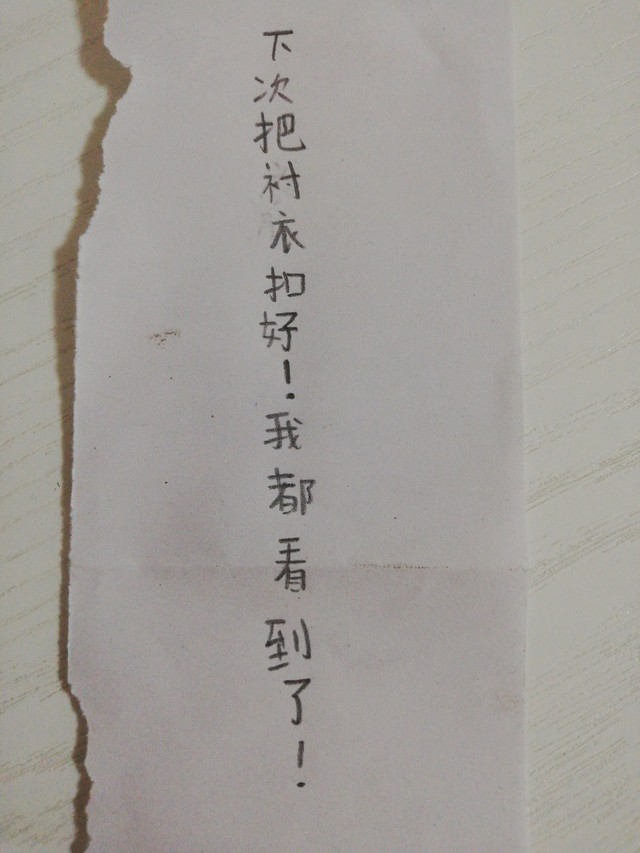 下次把衬衣扣好！我都看到了！